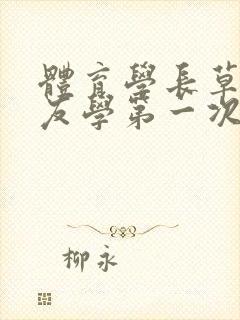 體育學長草
友學第一次
柳永